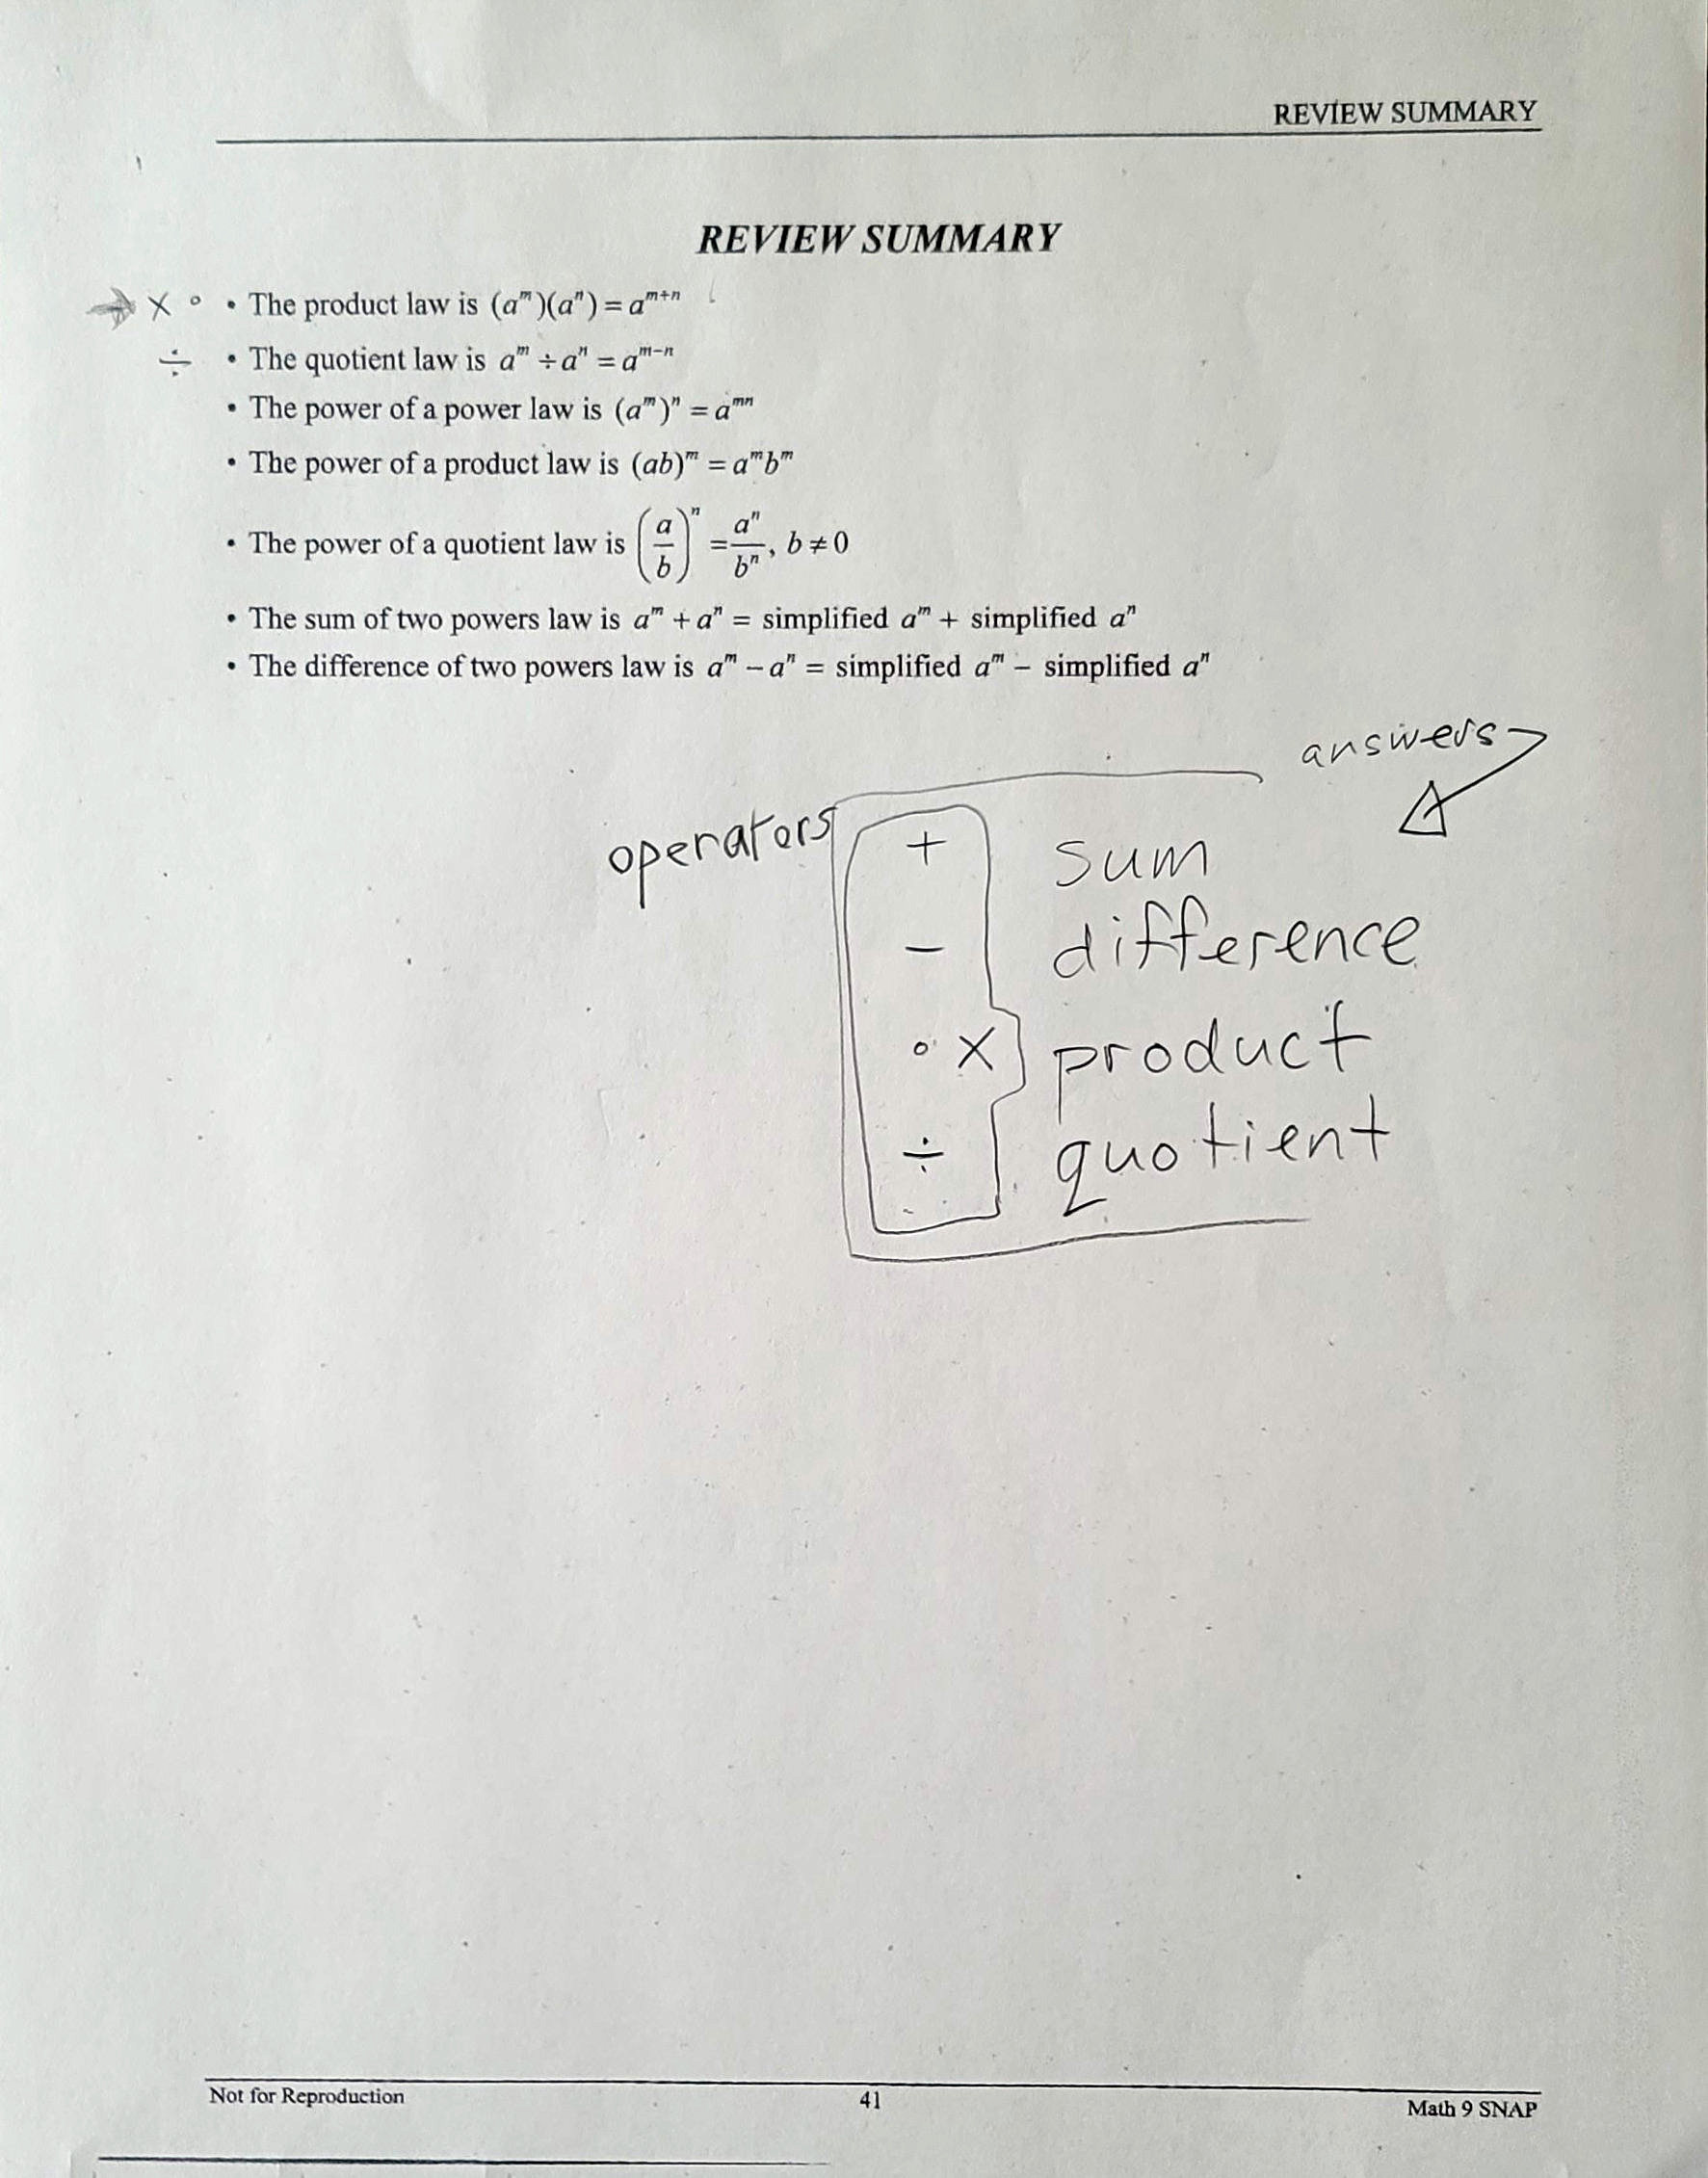 REVIEW SUMMARY
REVIEW SUMMARY
→ × ∘ • The product law is (aᵐ)(aⁿ) = aᵐ⁺ⁿ
÷ • The quotient law is aᵐ ÷ aⁿ = aᵐ⁻ⁿ
• The power of a power law is (aᵐ)ⁿ = aᵐⁿ
• The power of a product law is (ab)ᵐ = aᵐbᵐ
• The power of a quotient law is (a/b)ⁿ = aⁿ/bⁿ, b ≠ 0
• The sum of two powers law is aᵐ + aⁿ = simplified aᵐ + simplified aⁿ
• The difference of two powers law is aᵐ − aⁿ = simplified aᵐ − simplified aⁿ
answers
operators + sum
− difference
∘ × product
÷ quotient
Not for Reproduction 41 Math 9 SNAP